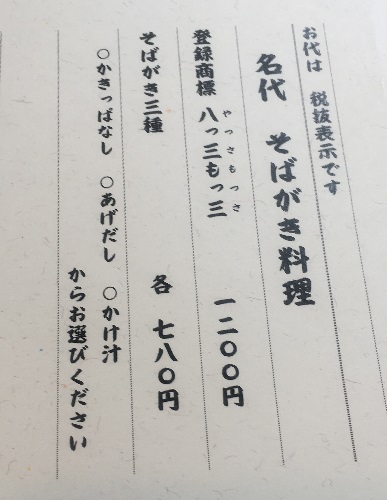 お代は 税抜表示です
名代 そばがき料理
登録商標 八っ三もっ三 一二〇〇円
やっさもっさ
そばがき三種 各 七八〇円
○かきっぱなし ○あげだし ○かけ汁
からお選びください